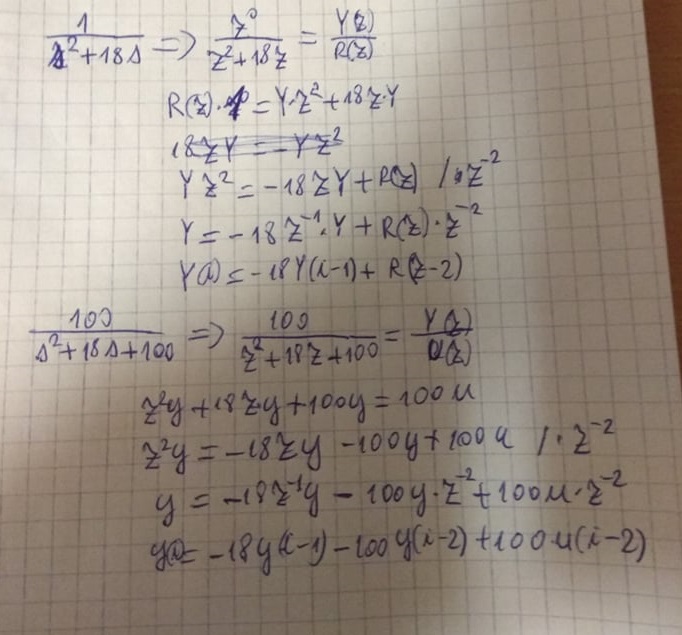 1/(s²+18s) => z⁰/(z²+18z) = Y(z)/R(z)
R(z)·1 = Y·z²+18z·Y
18zY = -Yz²
Yz² = -18zY+R(z) /·z⁻²
Y = -18z⁻¹·Y + R(z)·z⁻²
Y(i) = -18Y(i-1) + R(z-2)
100/(s²+18s+100) => 100/(z²+18z+100) = Y(z)/U(z)
z²y +18zy+100y = 100u
z²y = -18zy -100y+100u /·z⁻²
y = -18z⁻¹y - 100y·z⁻²+100u·z⁻²
y(i)= -18y(i-1) -100y(i-2) +100u(i-2)